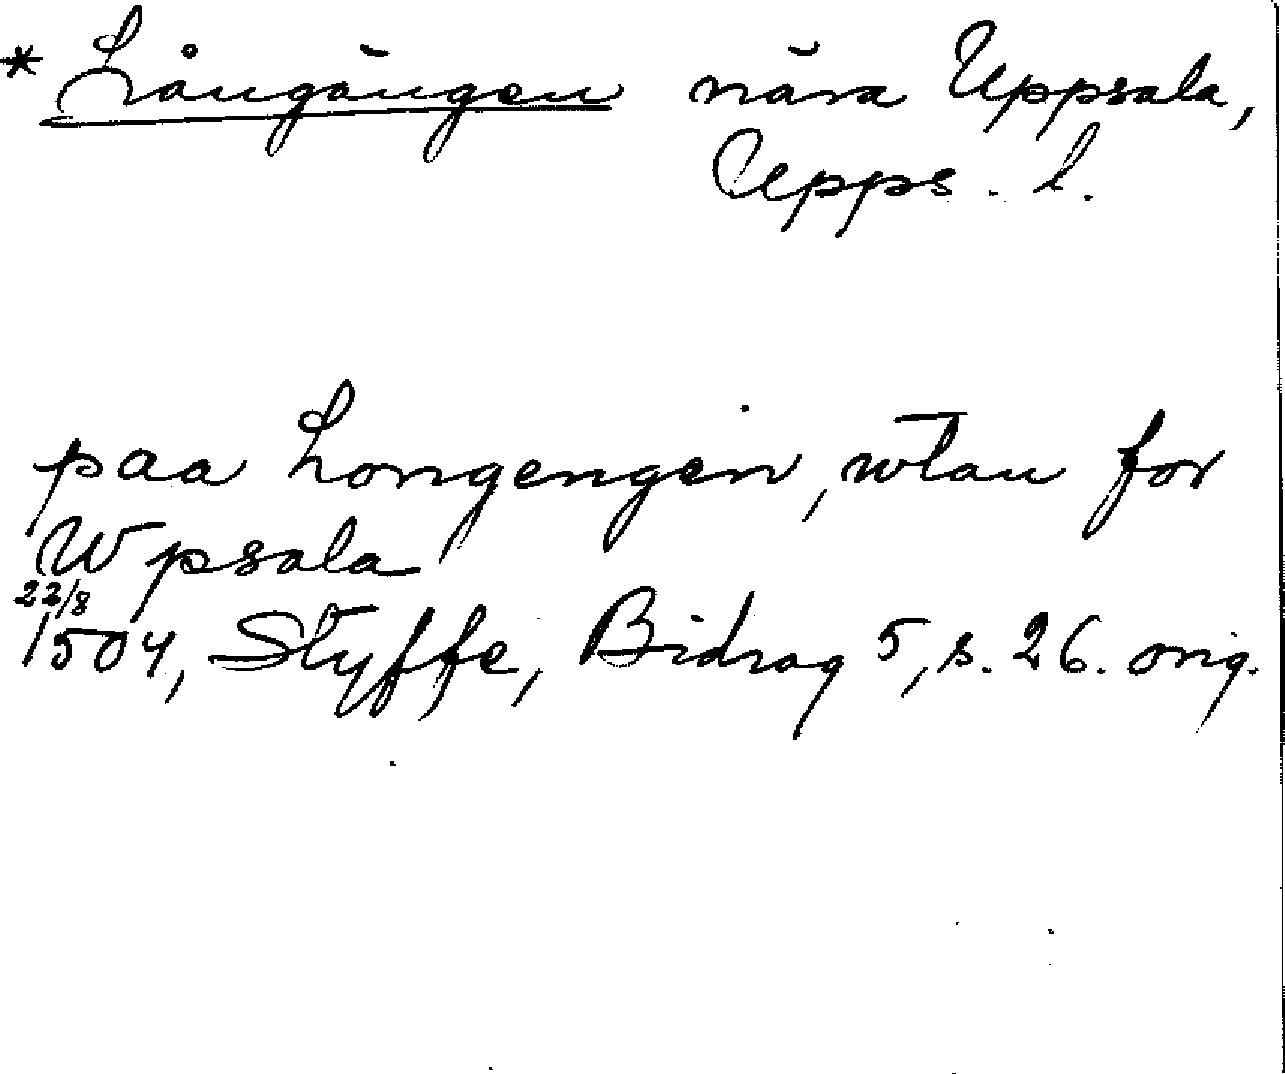 * Långängen nära Uppsala,
Upps. l.
paa Longengen, wtan for
Wpsala
22/8
1504, Styffe, Bidrag 5, s. 26. orig.